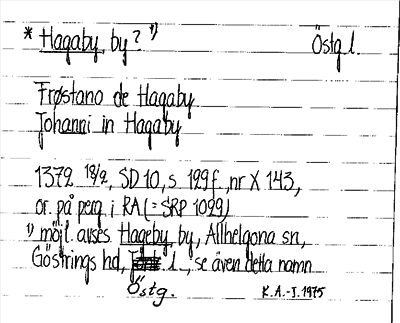 * Hagaby, by? ¹⁾ Östg l.
Frøstano de Hagaby
Johanni in Hagaby
1372 18/2, SD 10, s. 129 f., nr X 143,
or. på perg. i RA (= SRP 1029)
¹⁾ möjl. avses Hageby, by, Allhelgona sn,
Göstrings hd, l., se även detta namn
Östg.
K.A.-I. 1975